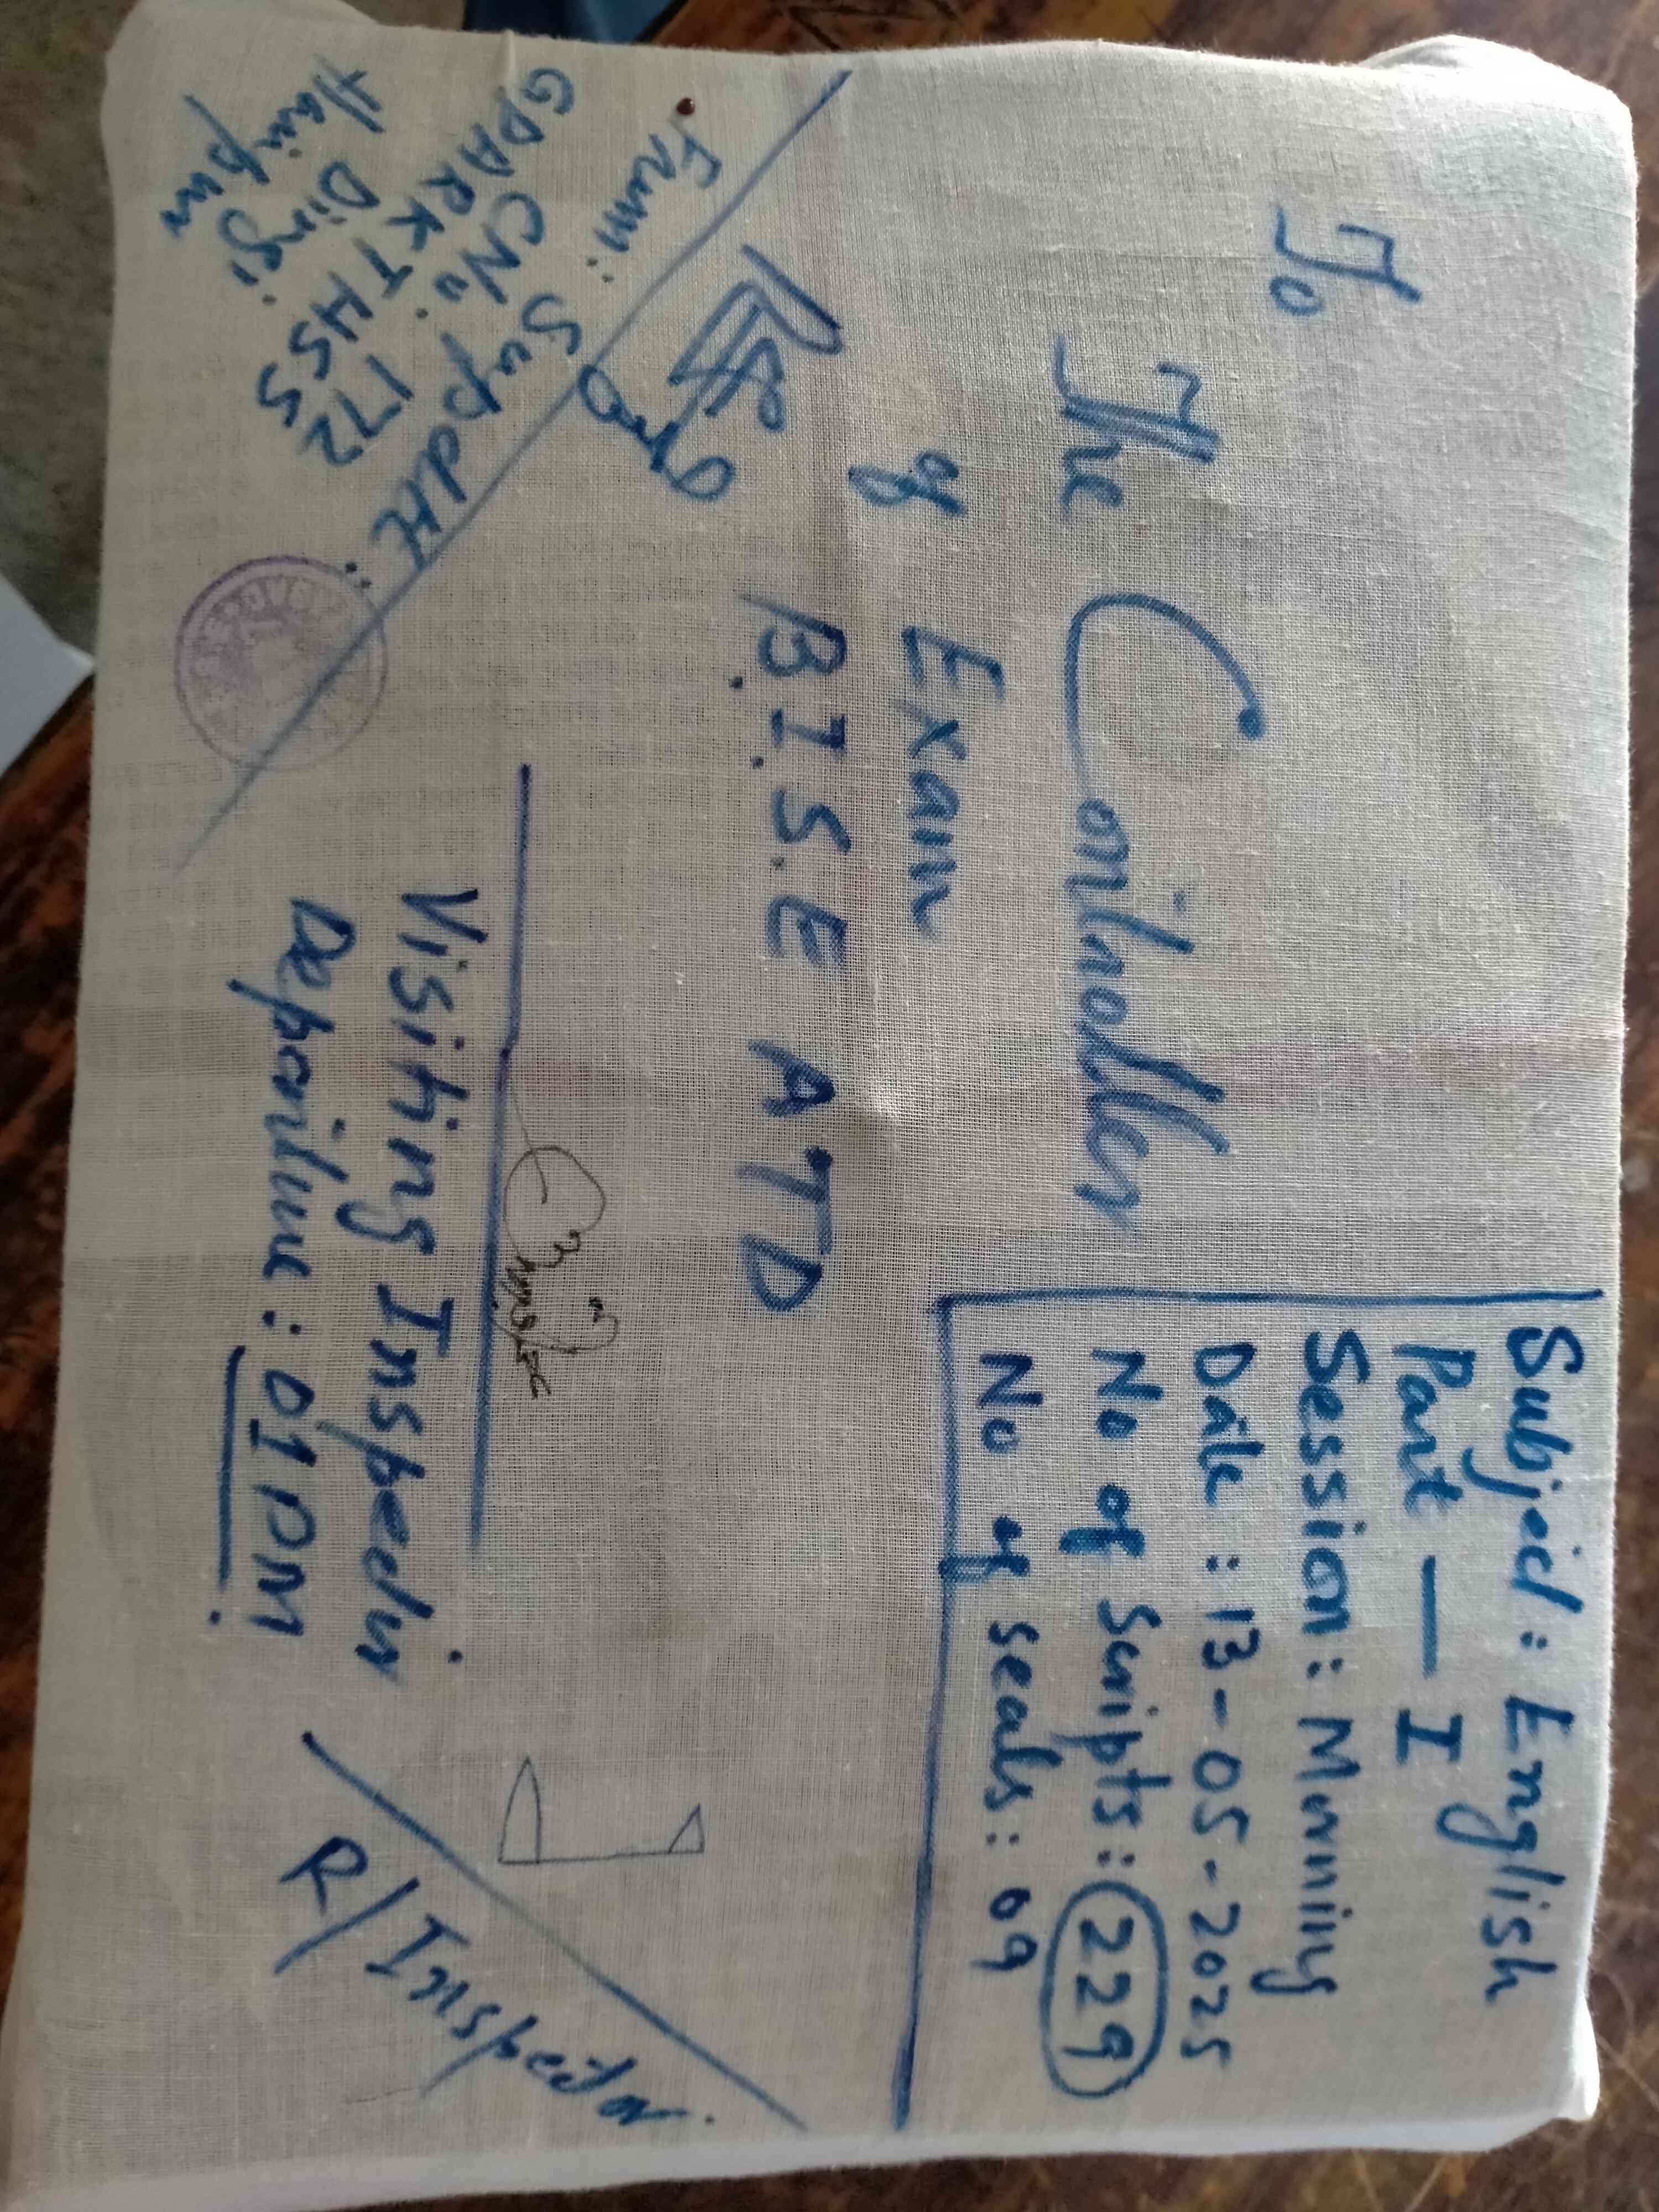 To
The Controller
of Exam
B.I.S.E ATD
Subject : English
Part — I
Session : Morning
Date : 13-05-2025
No of Scripts : 229
No of seals : 09
From : Supdtt :
CNo : 172
GDARKTHSS
Dingi
Haripur
Visiting Inspector
Departure : 01PM
R/Inspector